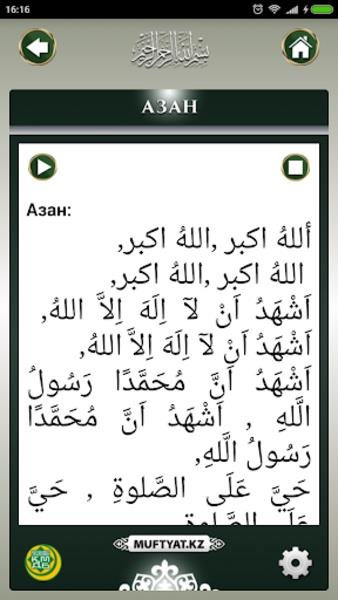 16:16
بسم الله الرحمن الرحيم
АЗАН
Азан:
أللهُ اكبر ,اللهُ اكبر,
اللهُ اكبر ,اللهُ اكبر,
اَشْهَدُ اَنْ لآ اِلَهَ اِلاَّ اللهُ,
اَشْهَدُ اَنْ لآ اِلَهَ اِلاَّ اللهُ,
اَشْهَدُ اَنَّ مُحَمَّدًا رَسُولُ
اللَّهِ , اَشْهَدُ اَنَّ مُحَمَّدًا
رَسُولُ اللَّهِ,
حَيَّ عَلَى الصَّلوةِ , حَيَّ
عَلَى الصَّلوةِ,
MUFTYAT.KZ
ҚМДБ